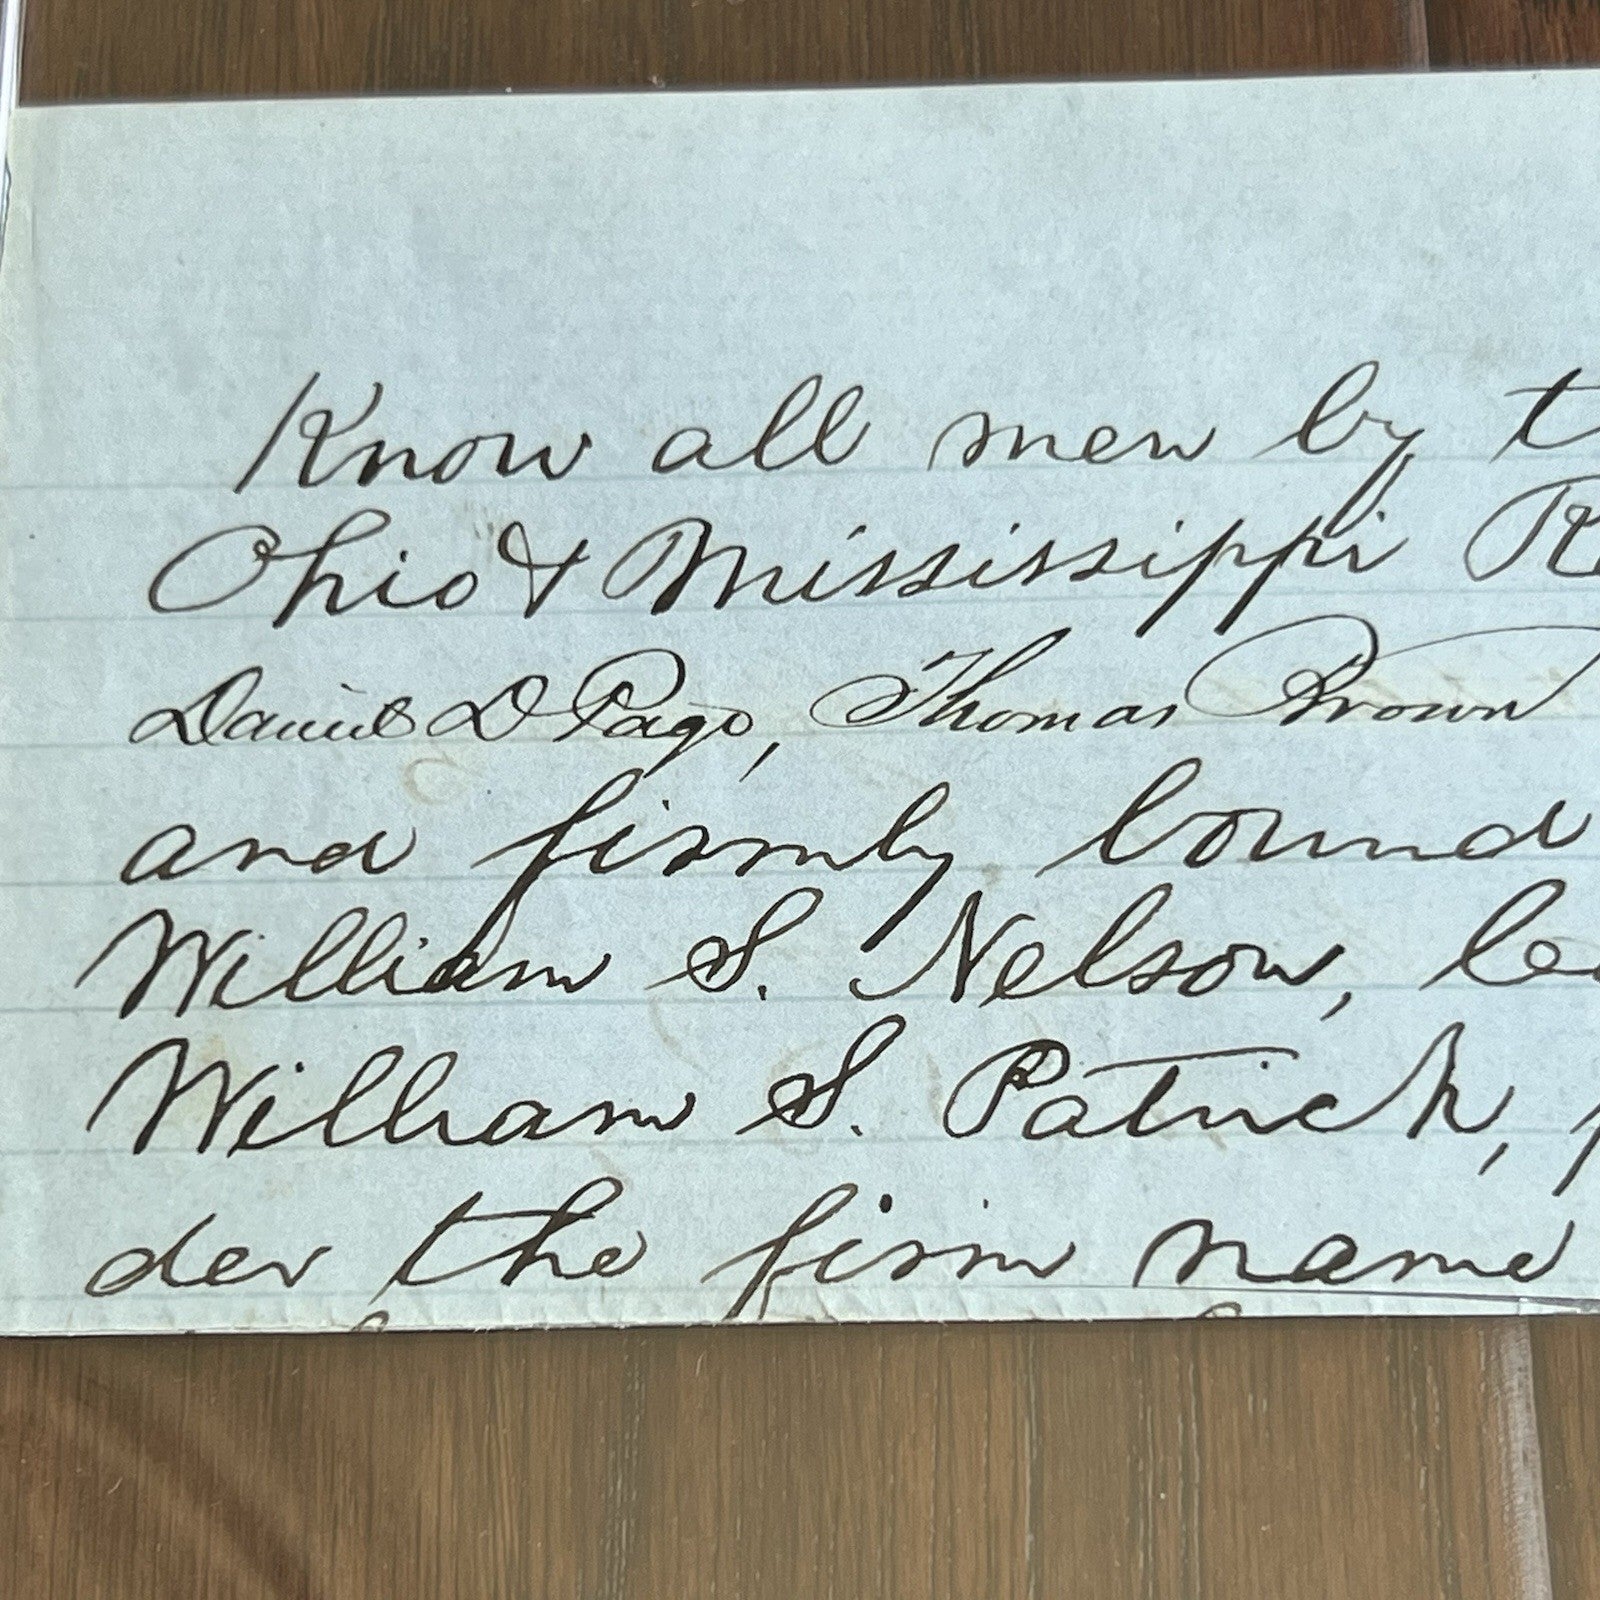 Know all men by t
Ohio & Mississippi R
Daniel D Page, Thomas Brown
and firmly bound
William S. Nelson, le
William S. Patrick, p
der the firm name